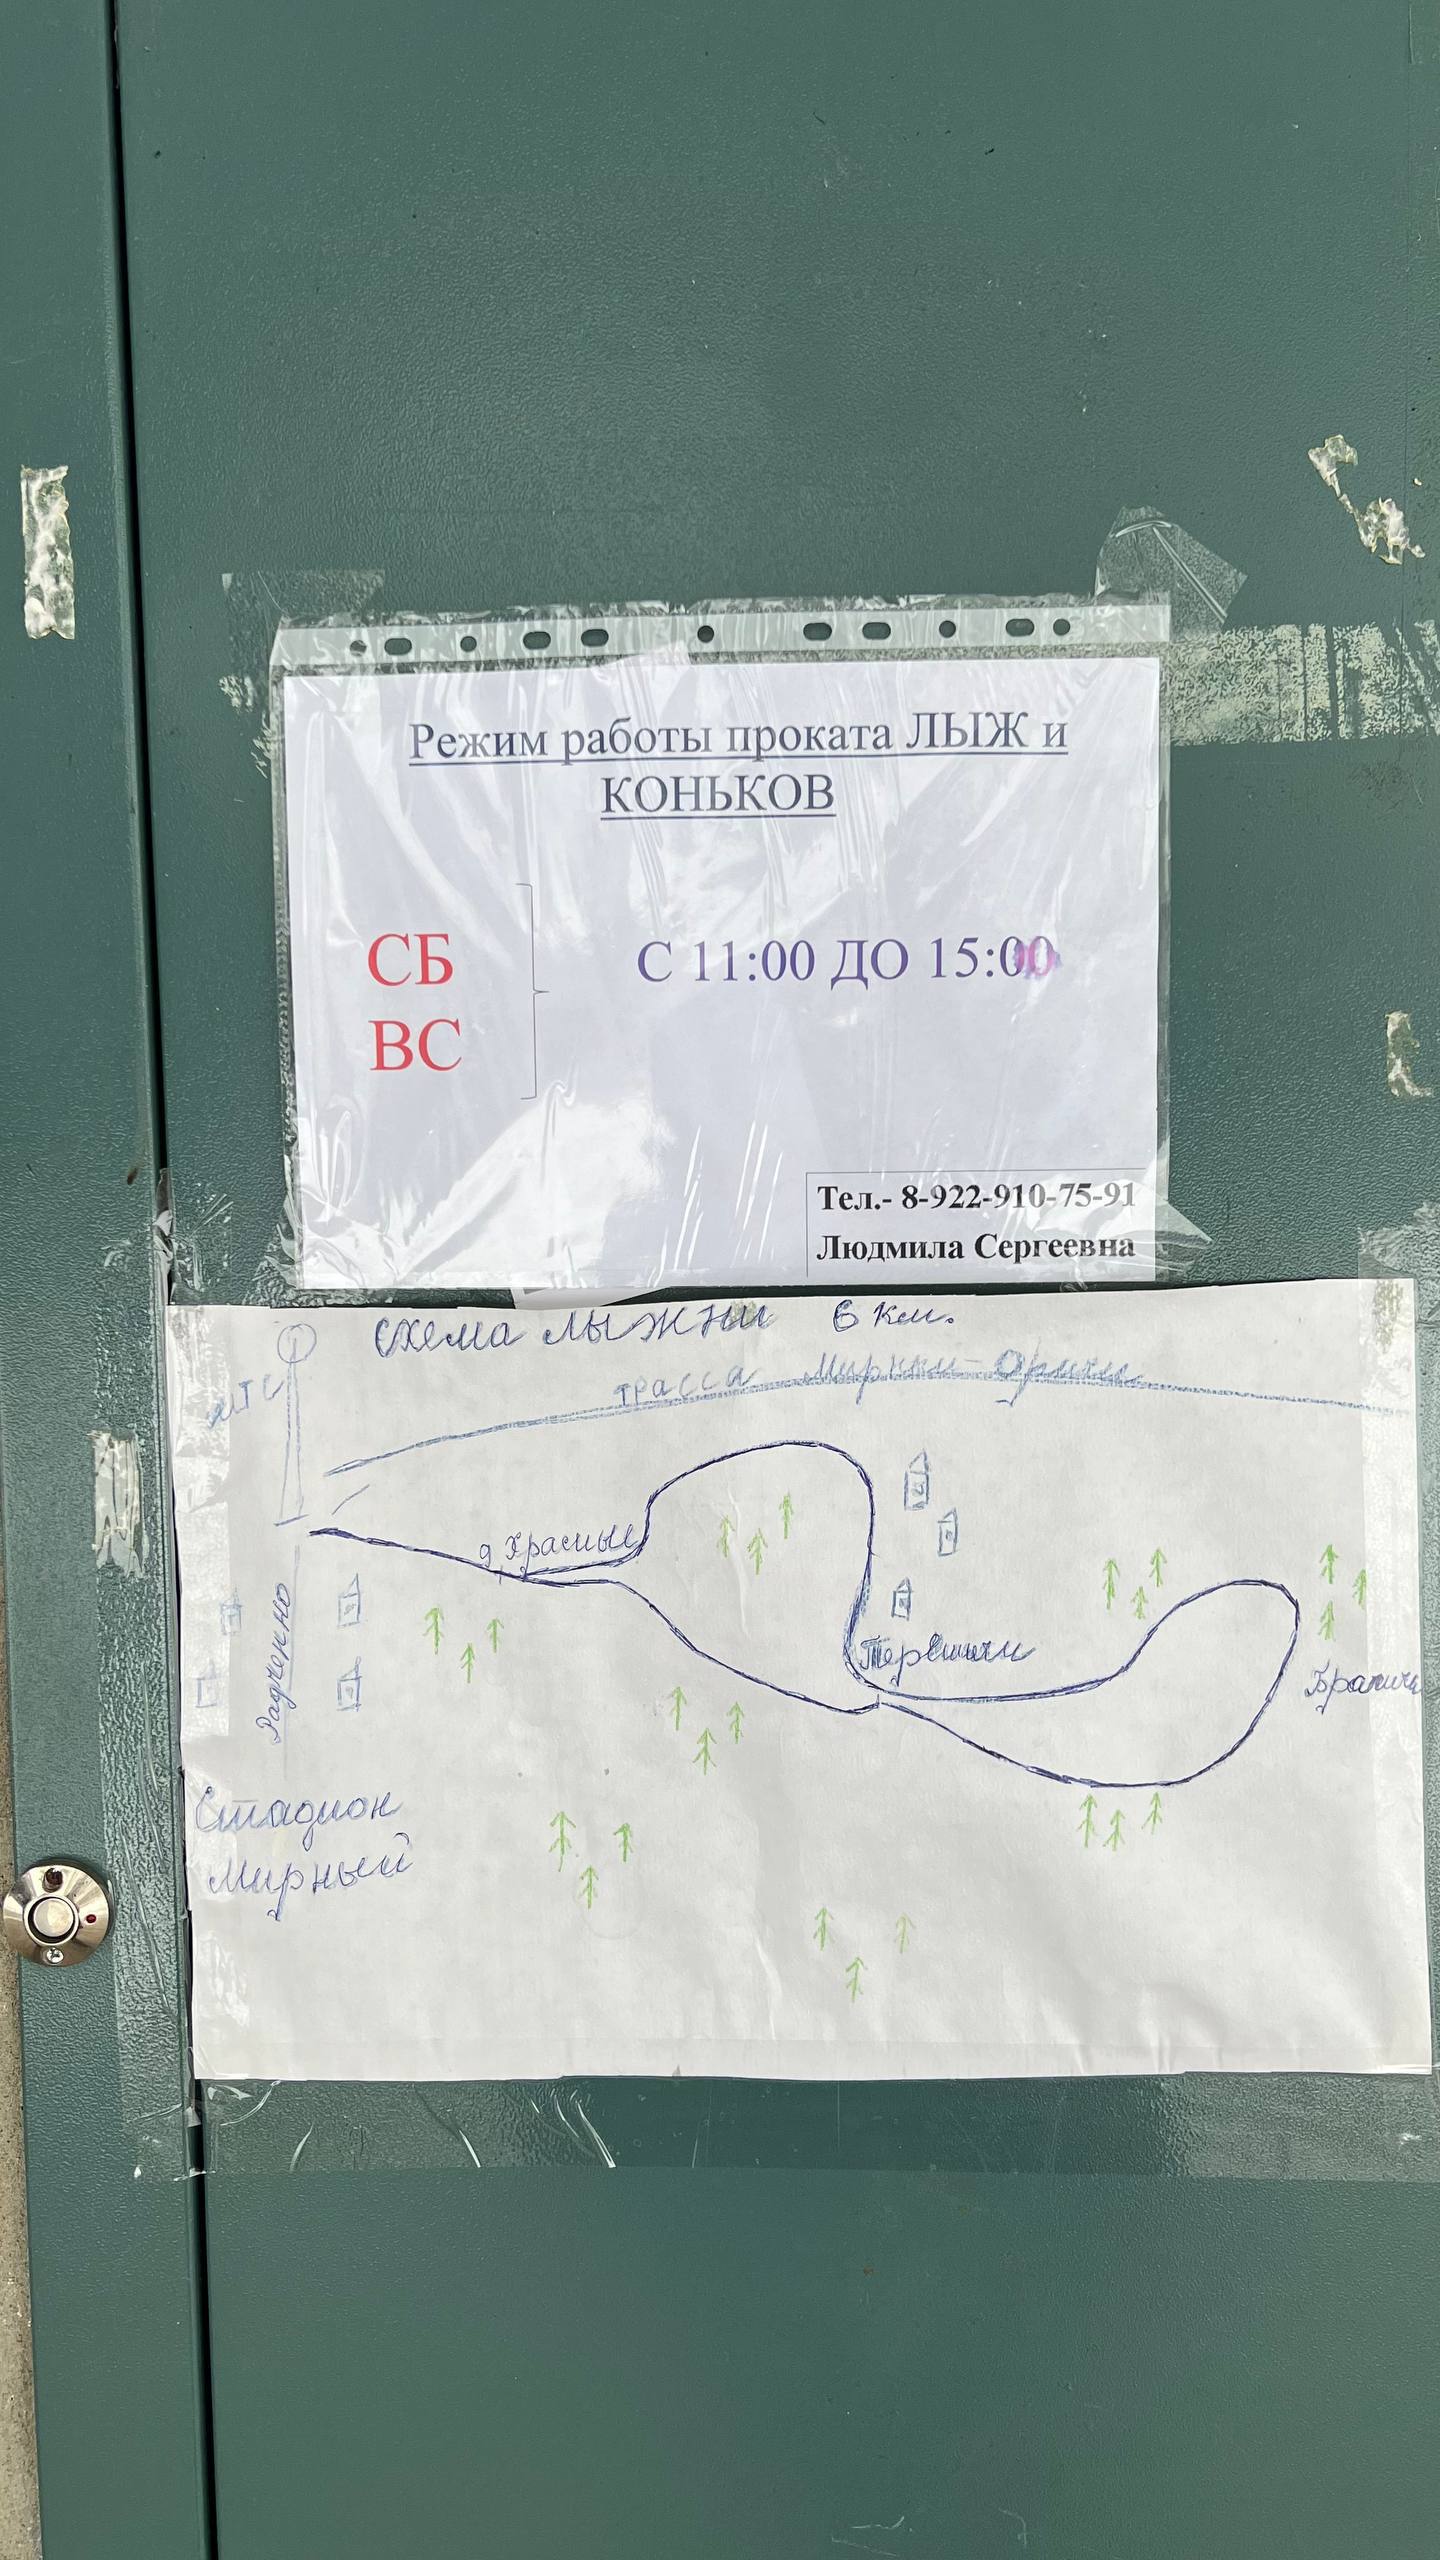 Режим работы проката ЛЫЖ и
КОНЬКОВ
СБ
С 11:00 ДО 15:00
ВС
Тел.- 8-922-910-75-91
Людмила Сергеевна
схема лыжни 6 км.
трасса Мирный-Оричи
МТС
д. Храмые
Першичи
Радченко
Стадион
Мирный